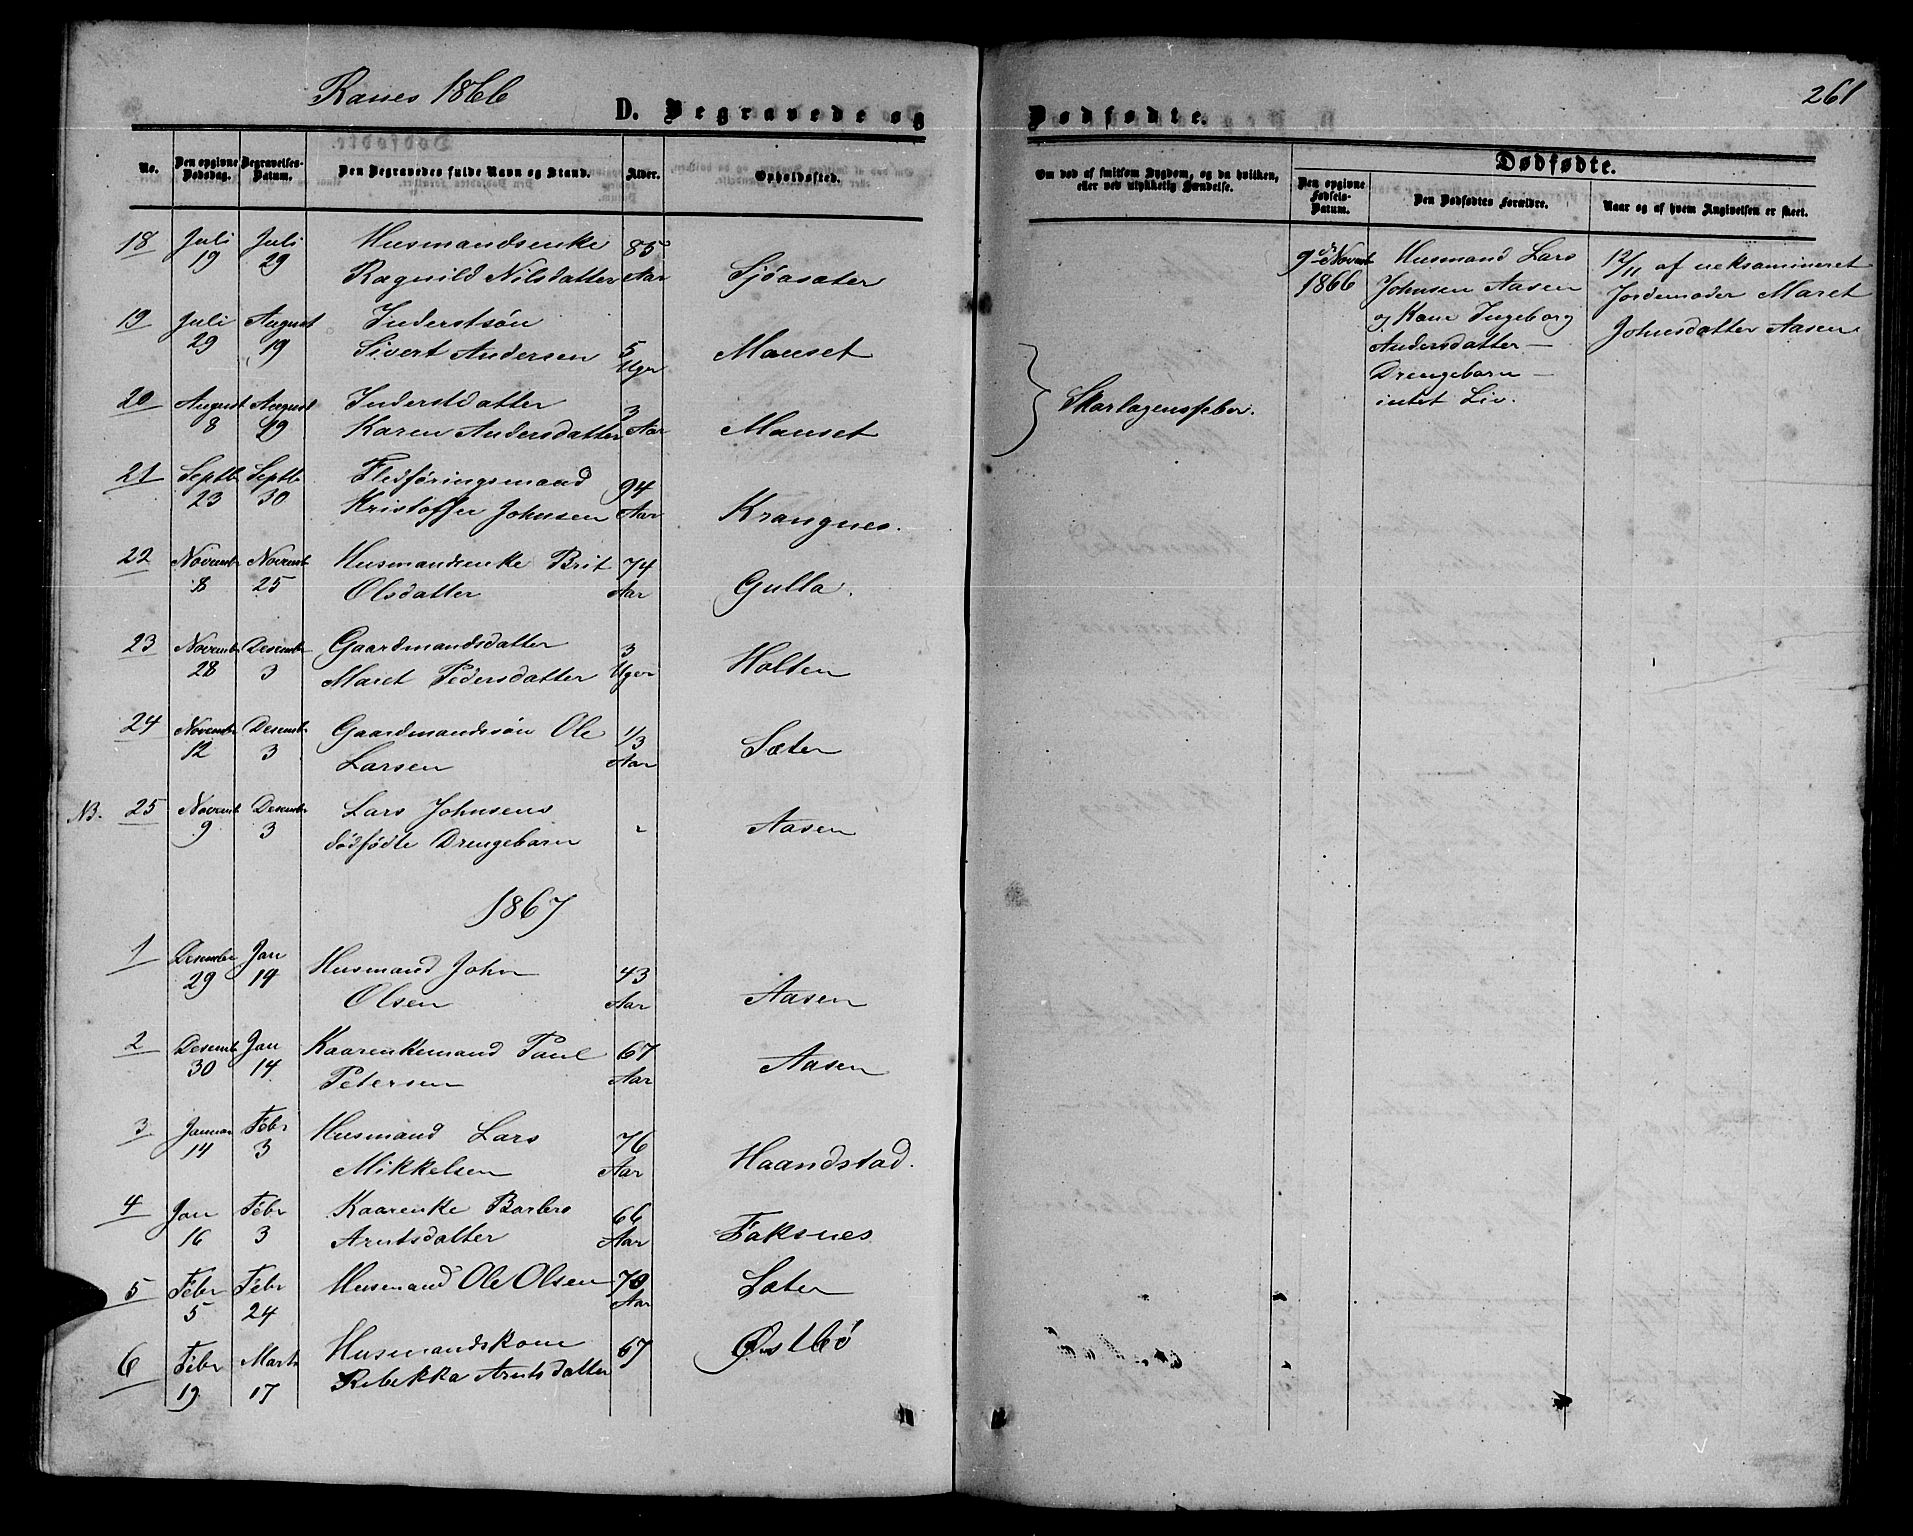 Ranes 1866
261
D. Begravede og
Dødfødte.
No.
Den opgivne Dødsdag.
Begravelses-Datum.
Den Begravedes fulde Navn og Stand.
Alder.
Opholdssted.
Om død af smitsom Sygdom, og da hvilken, eller ved ulykkelig Hændelse.
Dødfødte.
Den opgivne Fødsels-Datum.
Den Dødfødtes Forældre.
Naar og af hvem Angivelsen er skeet.
18 Juli 19 Juli 29 Husmandsenke
Ragnild Nilsdatter 85 Aar Sjöasæter
19 Juli 29 August 19 Inderstsön
Sivert Andersen 5 Uger Mauset
20 August 8 August 19 Inderstdatter
Karen Andersdatter 3 Aar Mauset
Skarlagensfeber.
21 Septb 23 Septb 30 Fledföringsmand
Kristoffer Johnsen 94 Aar Krangnes.
22 Novemb 8 Novemb 25 Husmandsenke Brit
Olsdatter 74 Aar Gulla.
23 Novemb 28 Desemb 3 Gaardmandsdatter
Maret Pedersdatter 3 Uger Holten
24 Novemb 12 Desemb 3 Gaardmandssön Ole
Larsen 1/3 Aar Sæter
NB. 25 Novemb 9 Desemb 3 Lars Johnsens
dödfödte Drengebarn - Aasen
9de Novemb
1866
Husmand Lars
Johnsen Aasen
og Kone Ingeborg
Andersdatter –
Drengebarn –
intet Liv.
12/11 af ueksamineret
Jordemoder Maret
Johnsdatter Aasen
1867
1 Desember 29 Jan 14 Husmand John
Olsen 43 Aar Aasen
2 Desemb 30 Jan 14 Kaarenkemand Paul
Petersen 67 Aar Aasen
3 Januar 14 Febr 3 Husmand Lars
Mikkelsen 76 Aar Haandstad.
4 Jan 16 Febr 3 Kaarenke Barbro
Arntsdatter 66 Aar Faksnes
5 Febr 5 Febr 24 Husmand Ole Olsen Aar Sæter
6 Febr 19 Marts 17 Husmandskone
Rebekka Arntsdatter 67 Østbö